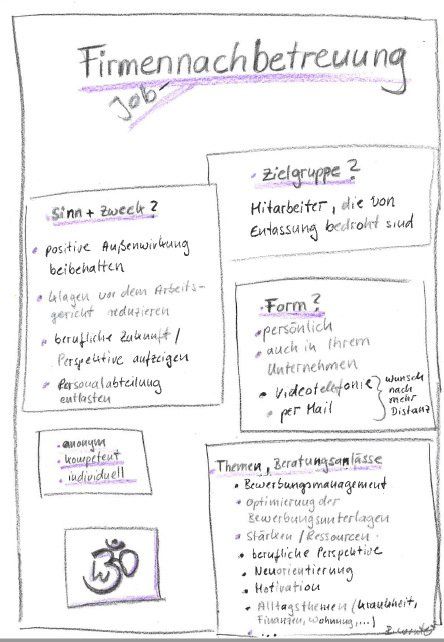 Firmennachbetreuung
Job-
Zielgruppe?
Mitarbeiter, die von
Entlassung bedroht sind
Sinn + Zweck?
positive Außenwirkung
beibehalten
Klagen vor dem Arbeits-
gericht reduzieren
berufliche Zukunft/
Perspektive aufzeigen
Personalabteilung
entlasten
Form?
persönlich
auch in Ihrem
Unternehmen
Videotelefonie
per Mail
Wunsch
nach
mehr
Distanz
anonym
kompetent
individuell
ॐ
Themen, Beratungsanlässe
Bewerbungsmanagement
Optimierung der
Bewerbungsunterlagen
Stärken/Ressourcen
berufliche Perspektive
Neuorientierung
Motivation
Alltagsthemen (Krankheit,
Finanzen, Wohnung,...)
...